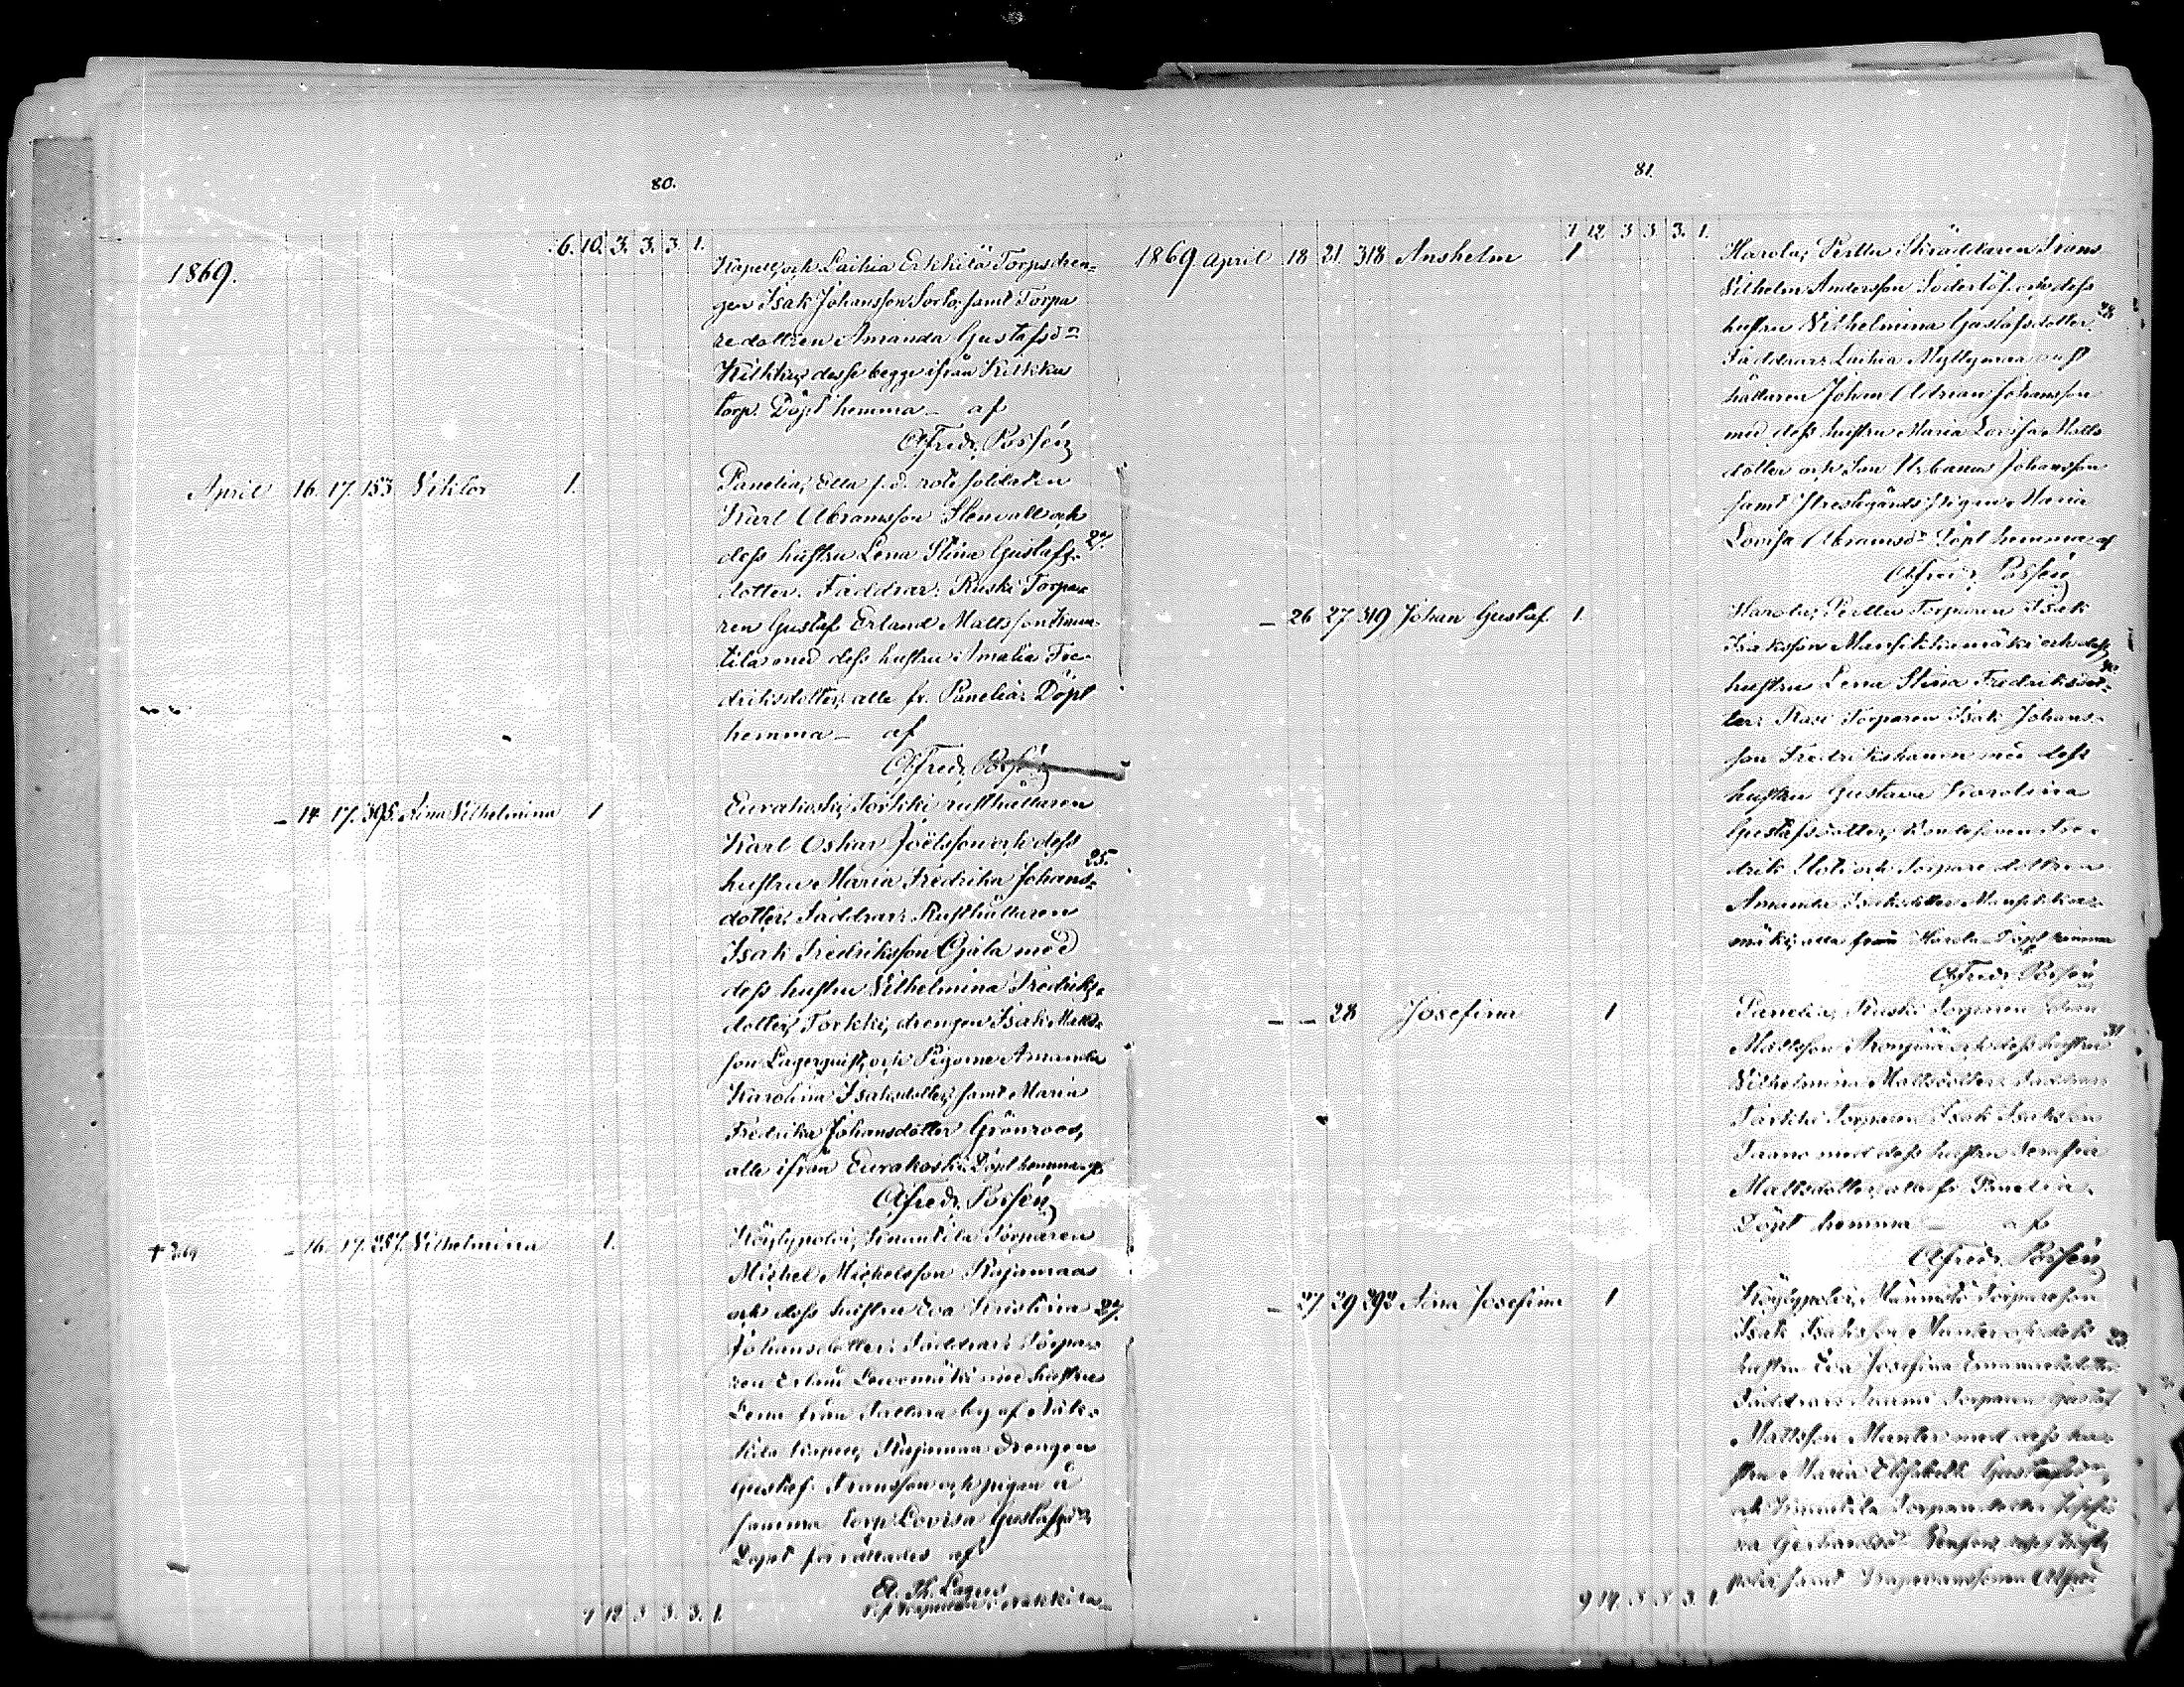 80.
6. 10. 3. 3. 3. 1.
1869.
Kapell, och Laihia Erkkilä Torpsdren-
gen Isak Johansson Sorto, samt Torpa
redottren Amanda Gustafsd:r
Kilkku, desse begge ifrån Kilkku
torp. Döpt hemma – af
Alfred. Possén
April 16. 17. 153 Viktor 1.
Panelia, Älla f.d. rote soldaten
Karl Abramsson Stenvall och
dess hustru Lena Stina Gustafs- 27.
dotter. Faddrar: Ruski Torpa-
ren Gustaf Erland Mattsson
tila med dess hustru Amalia Fre-
driksdotter, alle fr. Panelia. Döpt
hemma – af
Alfred. Possén
– 14 17. 305. Lina Vilhelmina 1
Eurakoski, Torkki rusthållaren
Karl Oskar Joëlsson och dess
hustru Maria Fredrika Johans- 25.
dotter, Faddrar: Rusthållaren
Isak Fredriksson Ojala med
dess hustru Vilhelmina Fredriks-
dotter, Torkki, drengen Isak Matts-
son Lagerquist, och Pigorne Amanda
Karolina Isaksdotter, samt Maria
Fredrika Johansdotter Grönroos,
alle ifrån Eurakoski. Döpt hemma af
Alfred. Possén
– 16. 17. 257. Vilhelmina 1.
Köylypolvi, Kinnutila Torparen
Michel Michelsson Rajamaa
och dess hustru Eva Kristina 27.
Johansdotter: Faddrar: Torpa-
ren Erland med hustru
Lena från Sallava by af Nak-
kila kapell, Rajamaa drengen
Gustaf Fransson och pigan å
samma torp Lovisa Gustafsd:r
Döpt förrättades af
A. Th. Lagus
i Nakkila
7 12 3 3. 3. 1.
81.
7 12 3 3 3. 1.
1869 April 18 21. 318 Anshelm 1
Harola, Pertta Skräddaren Frans
Vilhelm Andersson Söderlöf och dess
hustru Vilhelmina Gustafsdotter, 28
Faddrar: Laihia Myllymaa rust
hållaren Johan Adrian Johansson
med dess hustru Maria Lovisa Matts
dotter och Urbanus Johansson
samt Prestgårds pigan Maria
Lovisa Abramsd:r Döpt hemma af
Alfred. Possén
– 26 27 319 Johan Gustaf. 1.
Harola, Pertta Torparen Isak
Isaksson Mansikkamäki och dess
hustru Lena Stina Fredriksdot-
ter: Torparen Isak Johans-
son Fredrikshamn med dess
hustru Gustava Karolina
Gustafsdotter, Fre-
drik och Torpare dottren
Amanda Isaksdotter Mansikka-
mäki, alla från Harola. Döpt hemma
Alfred. Possén
– – 28 Josefina 1
Panelia, Ruski Torparen
Mattsson och dess hustru 31
Vilhelmina Mattsdotter: Faddrar
Torparen Isak Isaksson
med dess hustru Serafia
Mattsdotter, alla fr. Panelia.
Döpt hemma – af
Alfred. Possén
– 27 29 292 Josefina 1
Köylypolvi, Torpare son
Isak Isaksson och dess 23.
hustru Eva Josefina
Faddrar: Torparen Gustaf
Mattsson med dess hu-
stru Maria Elisabeth Gustafsd:r
och Kinnutila Torpare
samt
9 14. 3 3 3. 1.